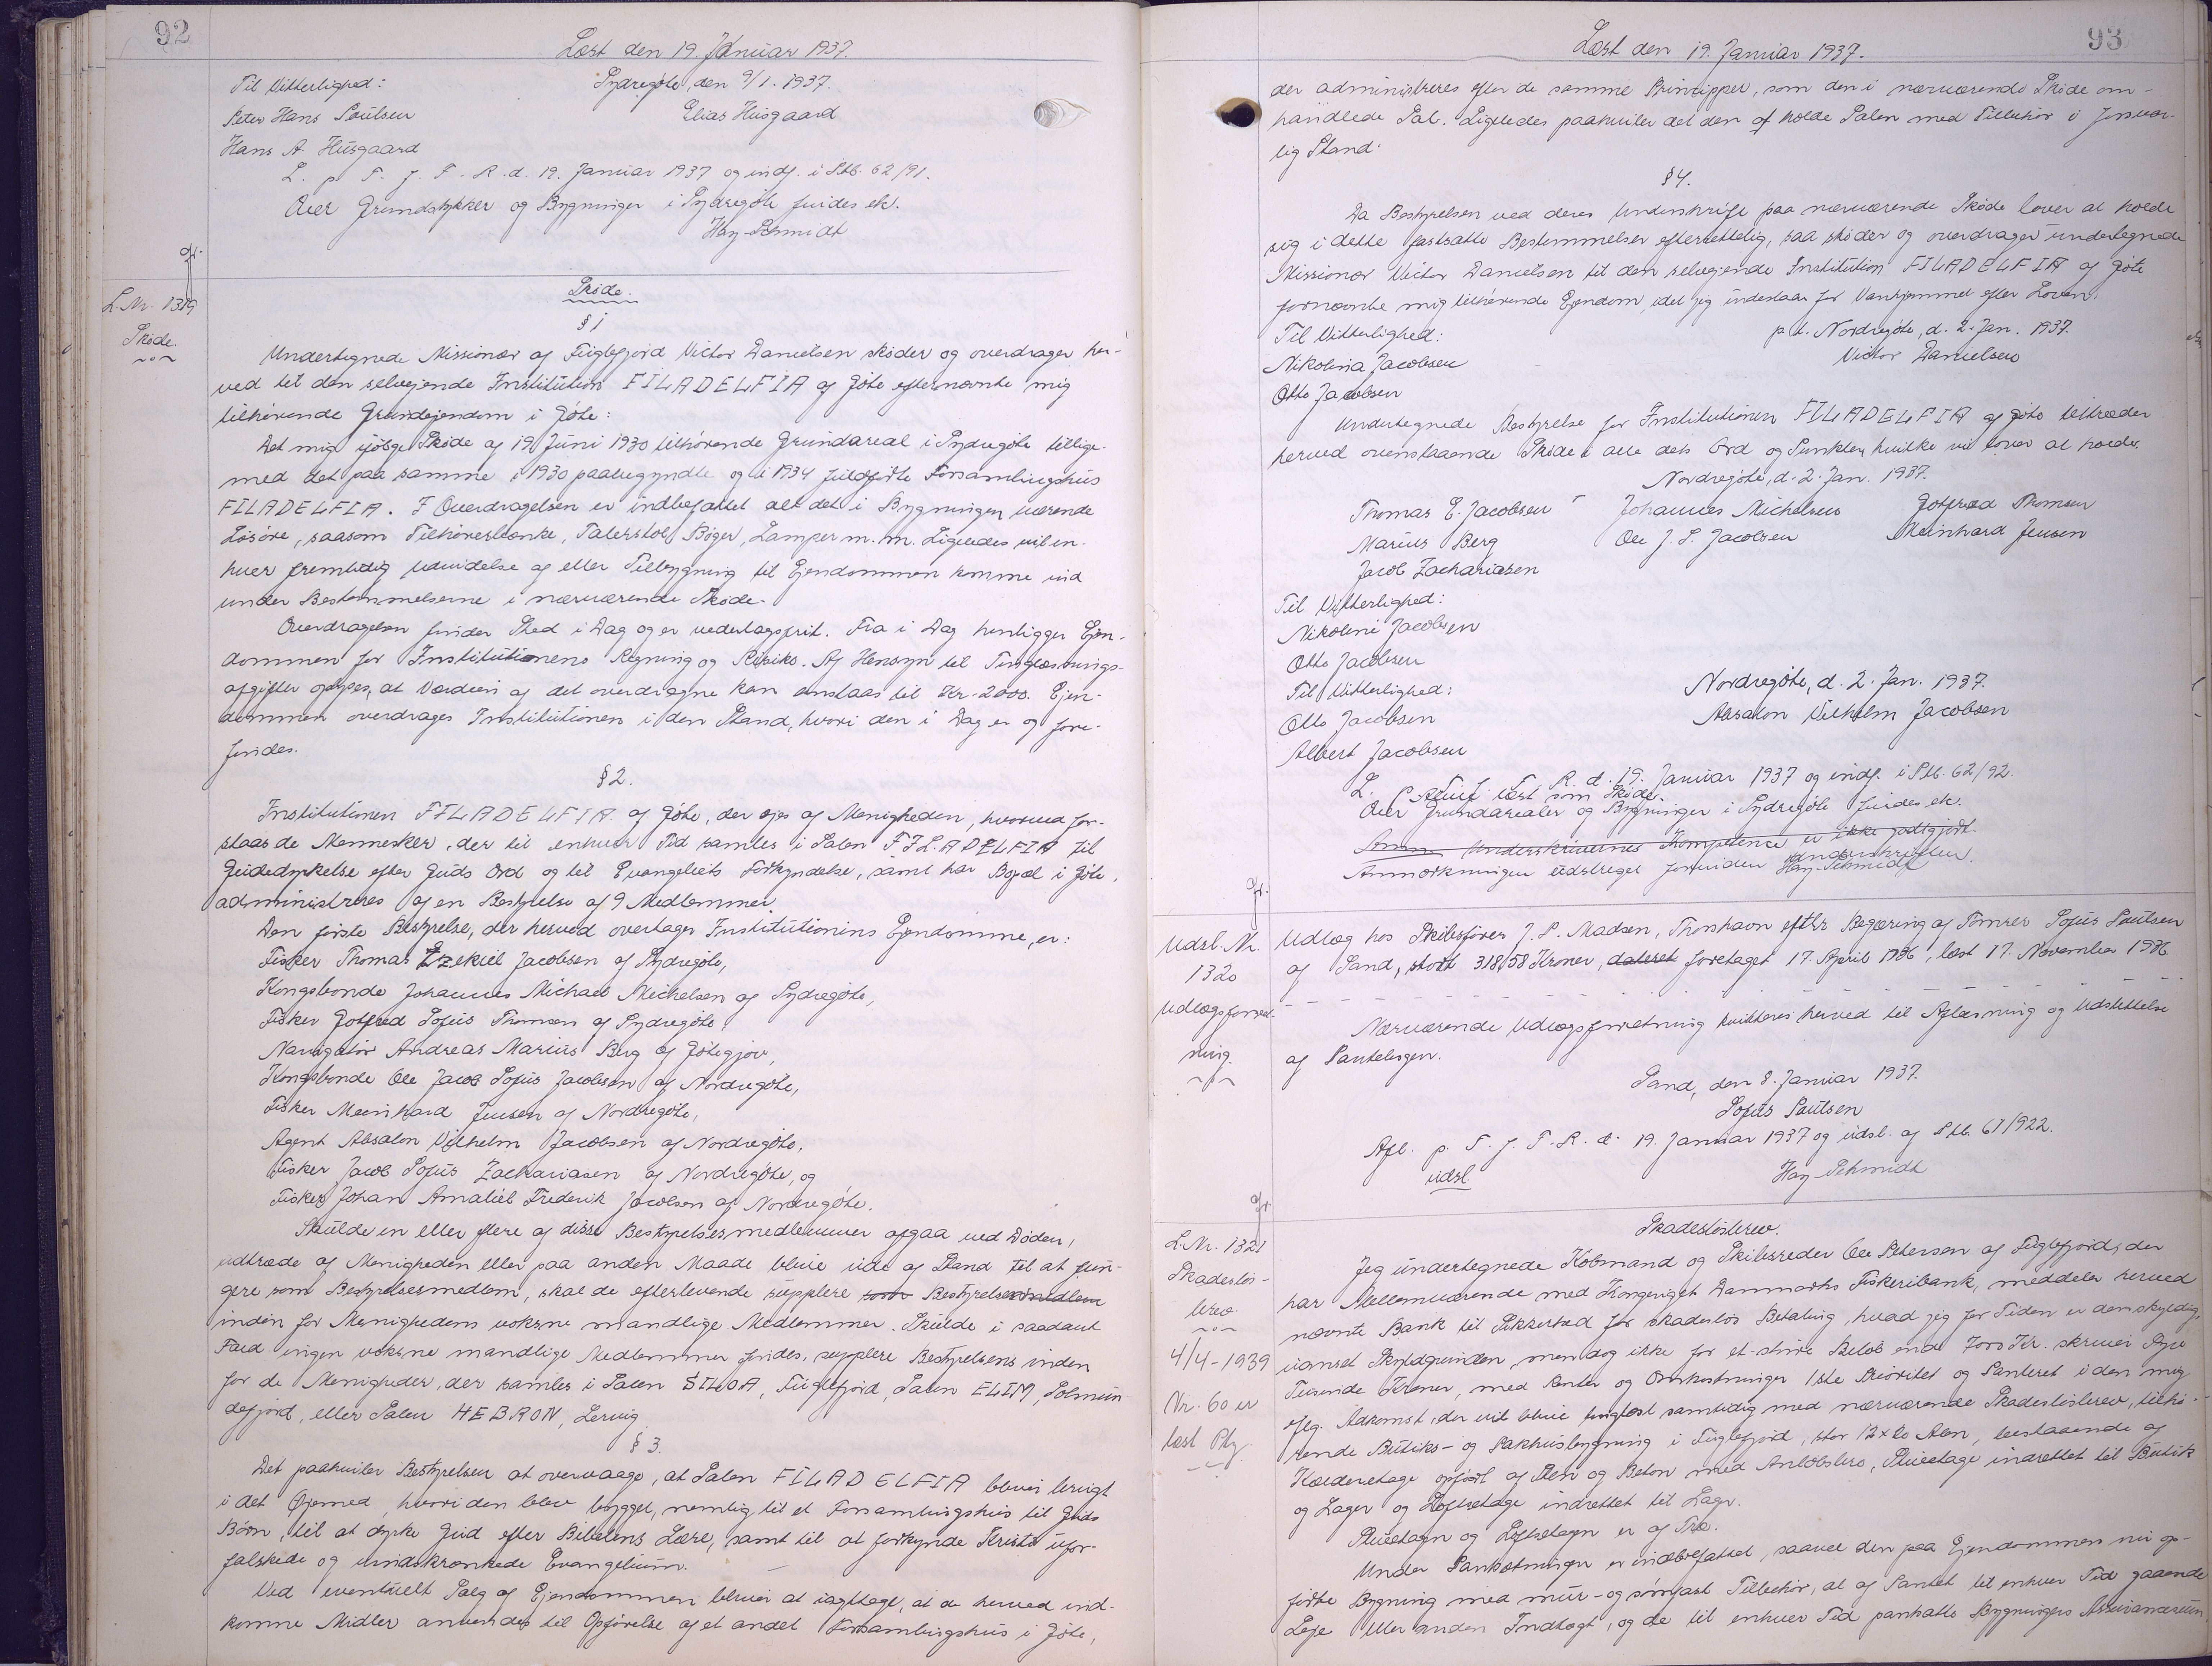 92
Læst den 19. Januar 1937.
Til Vitterlighed: Sydregøte, den 9/1. 1937.
Peter Hans Poulsen Elias Husgaard
Hans A. Husgaard
L. p. F. J. T. R. d. 19. Januar 1937 og indf. i Ptb. 62/91.
Over Grundstykker og Bygninger i Sydregøte findes ek.
Hay-Schmidt
gf.
L.Nr. 1319
Skøde.
Skøde.
§ 1
Undertegnede Missionær af Fuglefjord Victor Danielsen skøder og overdrager her-
ved til den selvejende Institution FILADELFIA af Gøte efternævnte mig
tilhørende Grundejendom i Gøte:
Det mig ifølge Skøde af 19 Juni 1930 tilhørende Grundareal i Sydregøte tillige
med det paa samme i 1930 paabegyndte og i 1934 fuldførte Forsamlingshus
FILADELFIA. I Overdragelsen er indbefattet alt det i Bygningen værende
Løsøre, saasom Tilhørerbænke, Talerstol, Bøger, Lamper m. m. Ligeledes vil en-
hver fremtidig Udvidelse af eller Tilbygning til Ejendommen komme ind
under Bestemmelserne i nærværende Skøde.
Overdragelsen finder Sted i Dag og er vederlagsfrit. Fra i Dag henligger Ejen-
dommen for Institutionens Regning og Risiko. Af Hensyn til Tinglæsnings-
afgifter oplyses, at Værdien af det overdragne kan anslaas til Kr. 2000. Ejen-
dommen overdrages Institutionen i den Stand, hvori den i Dag er og fore-
findes.
§ 2.
Institutionen FILADELFIA af Gøte, der ejes af Menigheden, hvorved for-
staas de Mennesker, der til enhver Tid samles i Salen FILADELFIA til
Gudsdyrkelse efter Guds Ord og til Evangeliets Forkyndelse, samt har Bopæl i Gøte,
administreres af en Bestyrelse af 9 Medlemmer.
Den første Bestyrelse, der herved overtager Institutionens Ejendomme, er:
Fisker Thomas Ezekiel Jacobsen af Sydregøte,
Kongsbonde Johannes Michael Michelsen af Sydregøte,
Fisker Gotfred Sofus Thomsen af Sydregøte,
Navigatør Andreas Marius Berg af Gøtegjov,
Kongsbonde Ole Jacob Sofus Jacobsen af Nordregøte,
Fisker Meinhard Jensen af Nordregøte,
Agent Absalon Vilhelm Jacobsen af Nordregøte,
Fisker Jacob Sofus Zachariasen af Nordregøte, og
Fisker Johan Amaliel Frederik Jacobsen af Nordregøte.
Skulde en eller flere af disse Bestyrelsesmedlemmer afgaa ved Døden,
udtræde af Menigheden eller paa anden Maade blive ude af Stand til at fun-
gere som Bestyrelsesmedlem, skal de efterlevende supplere som Bestyrelsesmedlem
inden for Menighedens voksne mandlige Medlemmer. Skulde i saadant
Fald ingen voksne mandlige Medlemmer findes, supplere Bestyrelsens inden
for de Menigheder, der samles i Salen SILOA, Fuglefjord, Salen ELIM, Solmun
defjord, eller Salen HEBRON, Lervig.
§ 3.
Det paahviler Bestyrelsen at overvaage, at Salen FILADELFIA bliver brugt
i det Øjemed, hvori den blev bygget, nemlig til et Forsamlingshus til Guds
Børn, til at dyrke Gud efter Bibelens Lære, samt til at forkynde Kristi ufor-
falskede og uindskrænkede Evangelium.
Ved eventuelt Salg af Ejendommen bliver at iagttage, at de herved ind-
komne Midler anvendes til Opførelse af et andet Forsamlingshus i Gøte,
93
Læst den 19. Januar 1937.
der administreres efter de samme Principper, som den i nærværende Skøde om-
handlede Sal. Ligeledes paahviler det den at holde Salen med Tilbehør i forsvar-
lig Stand.
§ 4.
Da Bestyrelsen ved deres Underskrift paa nærværende Skøde lover at holde
sig i dette fastsatte Bestemmelser efterrettelig, saa skøder og overdrager undertegnede
Missionær Victor Danielsen til den selvejende Institution FILADELFIA af Gøte
fornævnte mig tilhørende Ejendom, idet jeg indestaar for Vanhjemmel efter Loven.
Til Vitterlighed: p. t. Nordregøte, d. 2. Jan. 1937.
Nikolina Jacobsen Victor Danielsen
Otto Jacobsen
Undertegnede Bestyrelse for Institutionen FILADELFIA af Gøte tiltræder
herved ovenstaaende Skøde i alle dets Ord og Punkter, hvilke vi lover at holde.
Nordregøte, d. 2. Jan. 1937.
Thomas E. Jacobsen Johannes Michelsen Gotfred Thomsen
Marius Berg Ole J. S. Jacobsen Meinhard Jensen
Jacob Zachariasen
Til Vitterlighed:
Nikolini Jacobsen
Otto Jacobsen
Til Vitterlighed: Nordregøte, d. 2. Jan. 1937.
Otto Jacobsen Absalon Vilhelm Jacobsen
Albert Jacobsen
L. p. F. J. T. R. d. 19. Januar 1937 og indf. i Ptb. 62/92.
læst som Skøde.
Over Grundarealer og Bygninger i Sydregøte findes ek.
Anm. Underskrivernes Kompetence er ikke godtgjort.
Anmærkningen udstreget forinden Underskriften.
Hay-Schmidt
gf.
Udsl. Nr.
1320
Udlægsforret-
ning.
Udlæg hos Skibsfører J. P. Madsen, Thorshavn efter Begæring af Tømrer Sofus Poulsen
af Sand, stort 318,58 Kroner, dateret foretaget 17. April 1936, læst 17. November 1936
Nærværende Udlægsforretning kvitteres herved til Aflæsning og Udslettelse
af Pantebogen.
Sand, den 8. Januar 1937.
Sofus Poulsen
Afl. p. F. J. T. R. d. 19. Januar 1937 og udsl. af Ptb. 61/922.
udsl Hay-Schmidt
gf.
L.Nr. 1321
Skadesløs-
brev.
4/4-1939
Nr. 60 er
læst Ptg.
Skadesløsbrev.
Jeg undertegnede Købmand og Skibsreder Ole Petersen af Fuglefjord, der
har Mellemværende med Kongeriget Danmarks Fiskeribank, meddeler herved
nævnte Bank til Sikkerhed for skadesløs Betaling, hvad jeg for Tiden er den skyldig,
uanset Skyldgrunden, men dog ikke for et større Beløb end Kr. skriver
Tusinde Kroner, med Renter og Omkostninger 1ste Prioritet og Panteret i den mig
iflg. Adkomst, der vil blive tinglæst samtidig med nærværende Skadesløsbrev, tilhø-
rende Butiks- og Pakhusbygning i Fuglefjord, stor 12 x 20 Alen, bestaaende af
Kælderetage opført af Sten og Beton med Anløbsbro, Stueetage indrettet til Butik
og Lager og Loftsetage indrettet til Lager.
Stueetagen og Loftsetagen er af Træ.
Under Pantsætningen er indbefattet, saavel den paa Ejendommen nu op-
førte Bygning med mur- og sømfast Tilbehør, al af Pantet til enhver Tid gaaende
Leje eller anden Indtægt, og de til enhver Tid pantsatte Bygningers